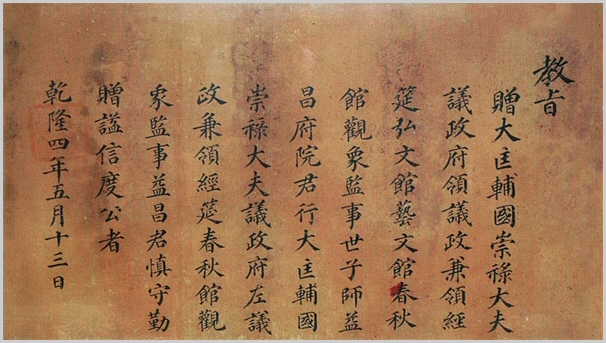 教旨
贈大匡輔國崇祿大夫
議政府領議政兼領經
筵弘文館藝文館春秋
館觀象監事世子師益
昌府院君行大匡輔國
崇祿大夫議政府左議
政兼領經筵春秋館觀
象監事益昌君慎守勤
贈謚信度公者
乾隆四年五月十三日